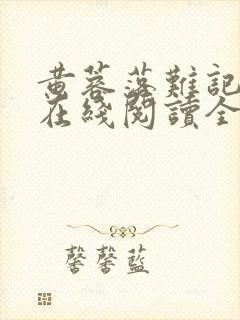 黄蓉落難記
在綫閱讀全
馨馨藍